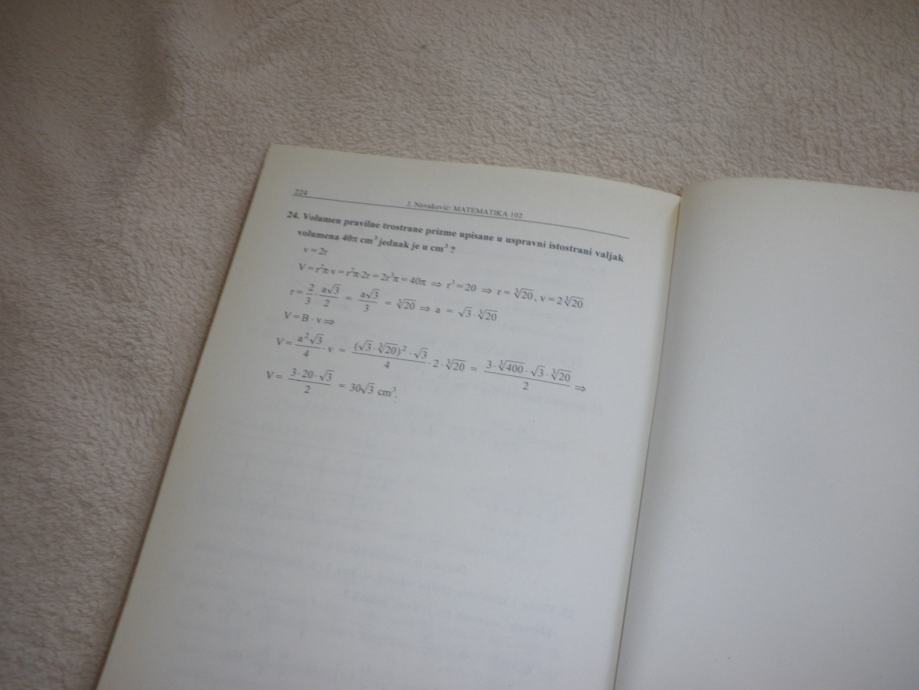 224
J. Novaković: MATEMATIKA 102
24. Volumen pravilne trostrane prizme upisane u uspravni istostrani valjak
volumena 40π cm³ jednak je u cm³ ?
v = 2r
V = r²π·v = r²π·2r = 2r³π = 40π ⇒ r³ = 20 ⇒ r = ∛20, v = 2∛20
r = 2/3 · a√3/2 = a√3/3 = ∛20 ⇒ a = √3 · ∛20
V = B · v ⇒
V = a²√3/4 · v = (√3 · ∛20)² · √3/4 · 2 · ∛20 = 3 · ∛400 · √3 · ∛20/2 ⇒
V = 3 · 20 · √3/2 = 30√3 cm³.